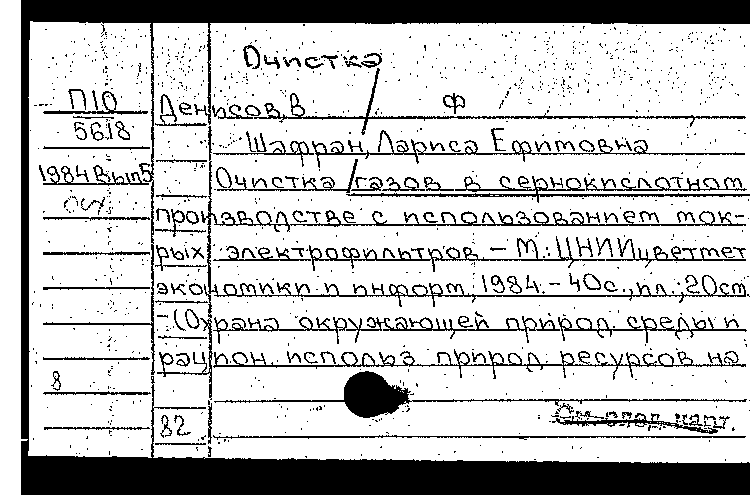 Очистка
П10
5618
1984 Вып5
Денисов, В Ф
Шафран, Лариса Ефимовна
Очистка газов в сернокислотном
производстве с использованием мок-
рых электрофильтров – М.: ЦНИИцветмет
экономики и информ, 1984. – 40с., ил.; 20см
– (Охрана окружающей природ. среды и
рацион. использ природ. ресурсов на
8
82
См. след. карт.